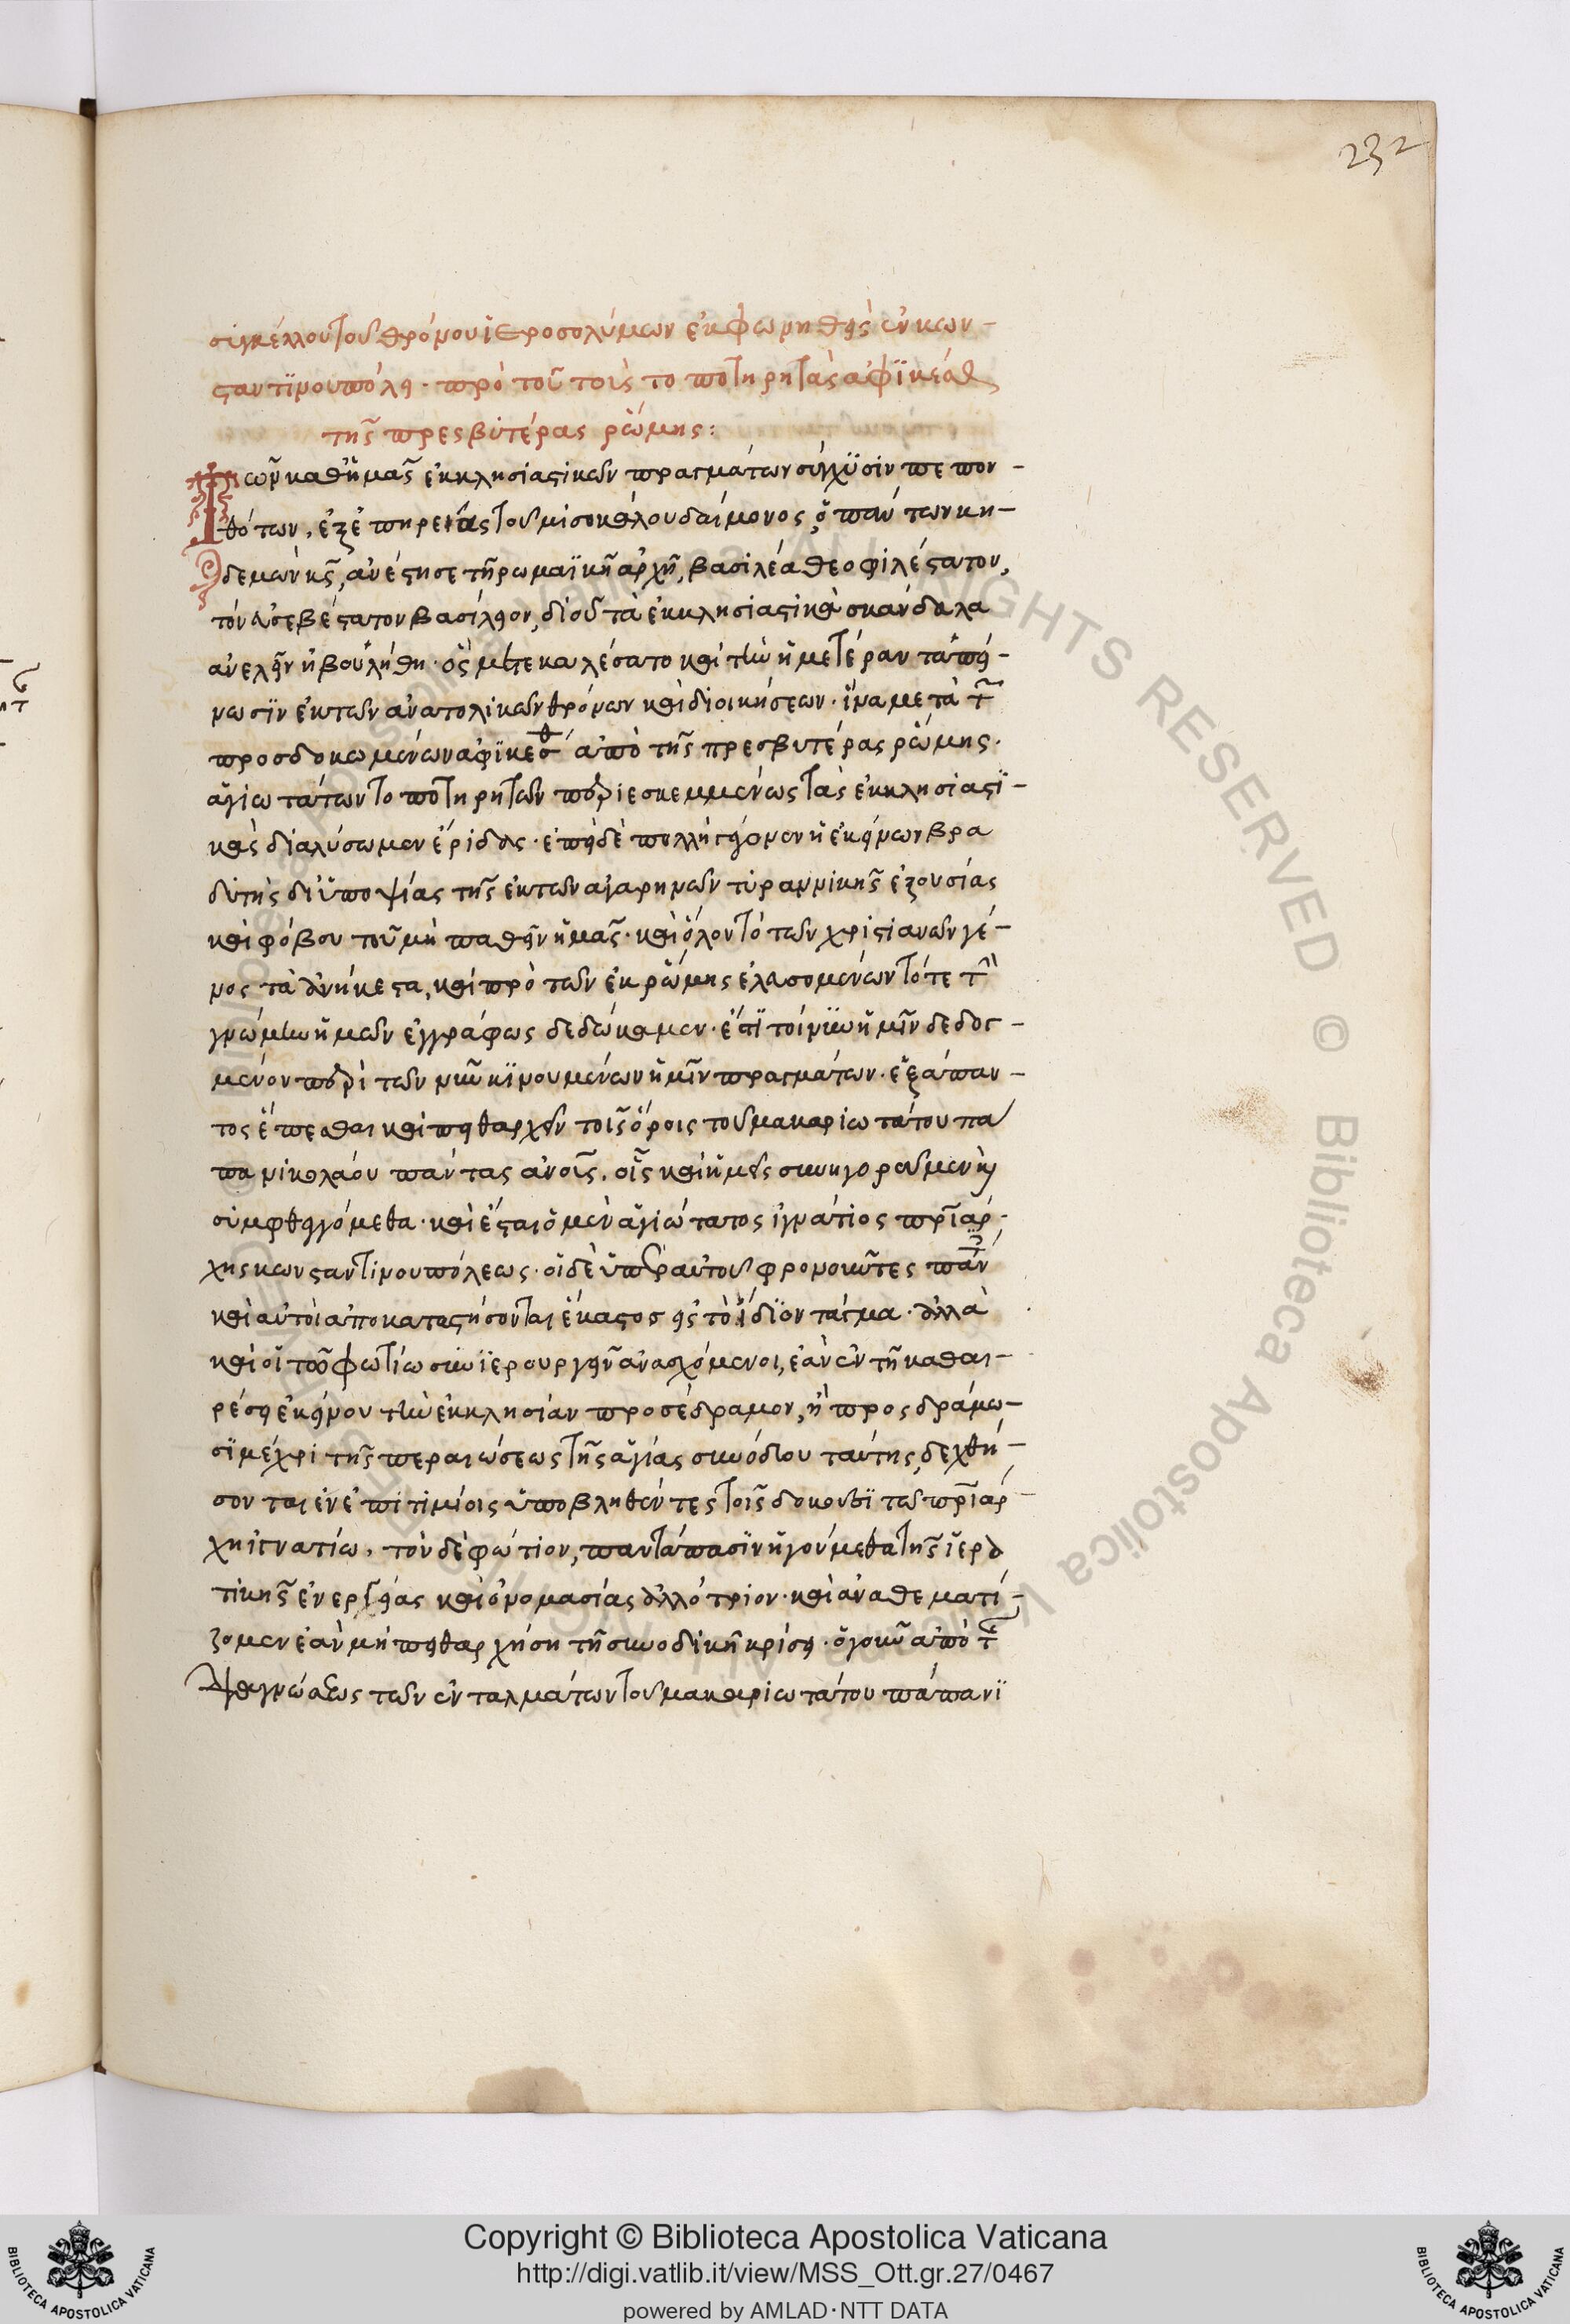 232
συγκέλλου τοῦ θρόνου ἱεροσολύμων ἐκφωνηθεὶς ἐν κων-
σταντϊνουπόλει · πρὸ τοῦ τοὺς τοποτηρητὰς ἀφϊκέσθ
τῆς πρεσβυτέρας ῥώμης:
Τῶν καθ ἡμᾶς ἐκκλησιαστικῶν πραγμάτων σύγχϋσιν πεπον-
θότων, ἐξ ἐπηρείας τοῦ μισοκάλου δαίμονος, ὁ πάντων κη-
δεμὼν κς, ἀνέστησε τῇ ρωμαϊκῇ ἀρχῇ, βασιλέα θεοφιλέστατον,
τὸν εὐσεβέστατον βασίλειον, δι οὗ τὰ ἐκκλησιαστικὰ σκάνδαλα
ἀνελεῖν ἠβουλήθη · ὃς μετεκαλέσατο καὶ τὴν ἡμετέραν ταπεί-
νωσϊν ἐκ τῶν ἀνατολικῶν θρόνων καὶ διοικήσεων · ἵνα μετὰ τ
προσδοκωμένων ἀφϊκέσθ ἀπὸ τῆς πρεσβυτέρας ῥώμης ·
ἁγιωτάτων τοποτηρητῶν περιεσκεμμένως τὰς ἐκκλησιαστϊ-
κὰς διαλύσωμεν ἔριδας · ἐπεὶ δὲ πολλὴ γέγονεν ἡ ἐκείνων βρα
δυτὴς δι ὑποψίας τῆς ἐκ τῶν ἀγαρηνῶν τυραννικῆς ἐξουσίας
καὶ φόβου τοῦ μὴ παθεῖν ἡμᾶς · καὶ ὅλον τὸ τῶν χριστιανῶν γέ-
νος τὰ ἀνήκεστα, καὶ πρὸ τῶν ἐκ ῥώμης ἐλευσομένων τότε τ
γνώμην ἡμῶν ἐγγράφως δεδώκαμεν · ἔστϊ τοίνϋν ἡμῖν δεδογ-
μένον περὶ τῶν νῦν κϊνουμένων ἡμῖν πραγμάτων · ἐξάπαν-
τος ἕπεσθαι καὶ πειθαρχεῖν τοῖς ὅροις τοῦ μακαριωτάτου πα
πα νικολάου πάντας ἀνοις, οἷς καὶ ἡμεῖς συνηγοροῦμεν κ
συμφθεγγόμεθα · καὶ ἔσται ὁ μὲν ἁγιώτατος ἰγνάτιος πριάρ-
χης κωνσταντινουπόλεως · οἱ δὲ ὑπὲρ αὐτοῦ φρονοῦντες παν
καὶ αὐτοὶ ἀποκαταστήσονται ἕκαστος εἰς τὸ ἴδϊον τάγμα · ἀλλὰ
καὶ οἱ τῷ φωτίω συνϊερουργεῖν ἀνασχόμενοι, ἐὰν ἐν τῇ καθαι-
ρέσει ἐκείνου τὴν ἐκκλησίαν προσέδραμον, ἢ προσδράμω-
σϊ μέχρι τῆς περαιώσεως τῆς ἁγίας συνόδου ταύτης, δεχθή-
σονται ἐν ἐπιτιμίοις ὑποβληθέντες τοῖς δοκοῦσϊ τῶ πριάρ-
χη ἰγνατίω, τὸν δὲ φώτιον, παντάπασϊν ἡγούμεθα τῆς ἱερα
τικῆς ἐνεργείας καὶ ὀνομασίας ἀλλότριον · καὶ ἀναθεματί-
ζομεν ἐὰν μὴ πειθαρχήση τῇ συνοδικῇ κρίσει · ὁ γοῦν ἀπὸ τ
ἀναγνώσεως τῶν ἐνταλμάτων τοῦ μακαριωτάτου πάπα νϊ
Copyright © Biblioteca Apostolica Vaticana
http://digi.vatlib.it/view/MSS_Ott.gr.27/0467
powered by AMLAD·NTT DATA